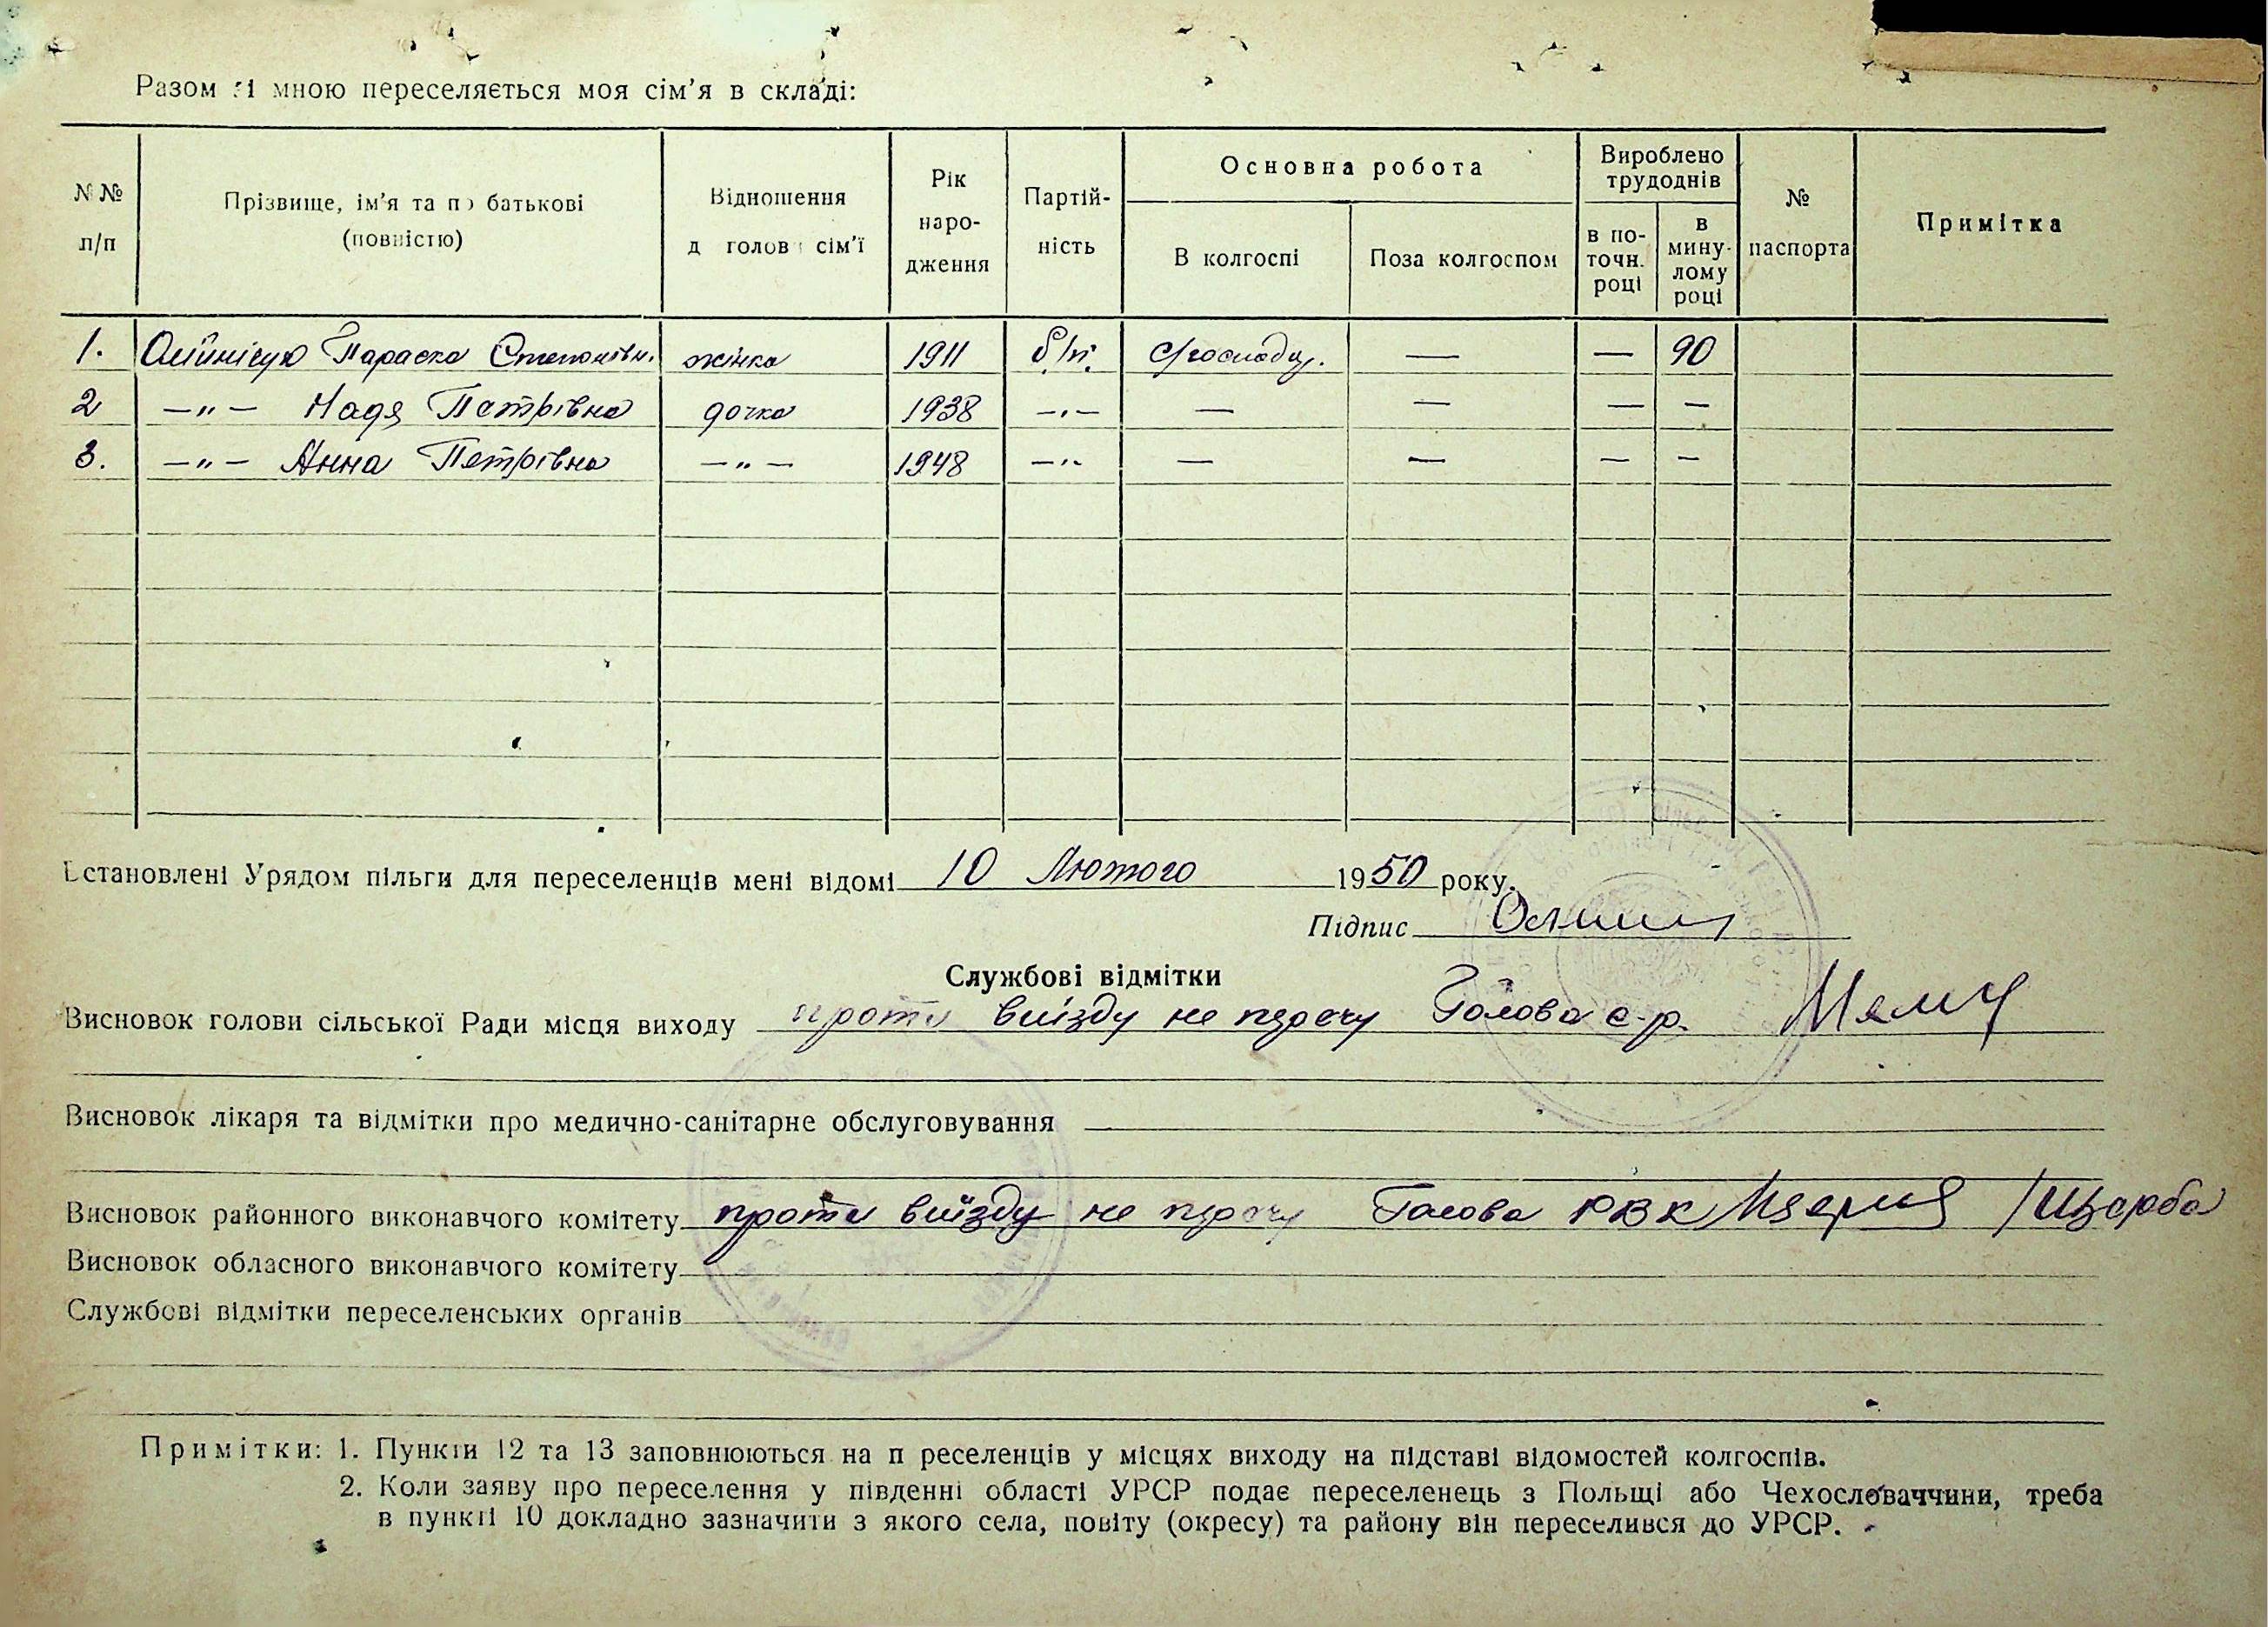 Разом зі мною переселяється моя сім'я в складі:
N№ п/п
Прізвище, ім'я та по батькові (повністю)
Відношення д голов сім'ї
Рік народження
Партійність
Основна робота
В колгоспі
Поза колгоспом
Вироблено трудоднів
в поточн. році
в минулому році
№ паспорта
Примітка
1. Параска Степанівн. жінка 1911 б/п. — — 90
2 —„— Надя Петрівна дочка 1938 —„— — — — —
3. —„— Анна Петрівна —„— 1948 —„— — — — —
Встановлені Урядом пільги для переселенців мені відомі 10 Лютого 1950 року.
Підпис
Службові відмітки
Висновок голови сільської Ради місця виходу проти виїзду не перечу Голова с-р.
Висновок лікаря та відмітки про медично-санітарне обслуговування
Висновок районного виконавчого комітету проти виїзду не перечу Голова РВК
Висновок обласного виконавчого комітету
Службові відмітки переселенських органів
Примітки: 1. Пункти 12 та 13 заповнюються на п реселенців у місцях виходу на підставі відомостей колгоспів.
2. Коли заяву про переселення у південні області УРСР подає переселенець з Польщі або Чехословаччини, треба
в пункті 10 докладно зазначити з якого села, повіту (окресу) та району він переселився до УРСР.